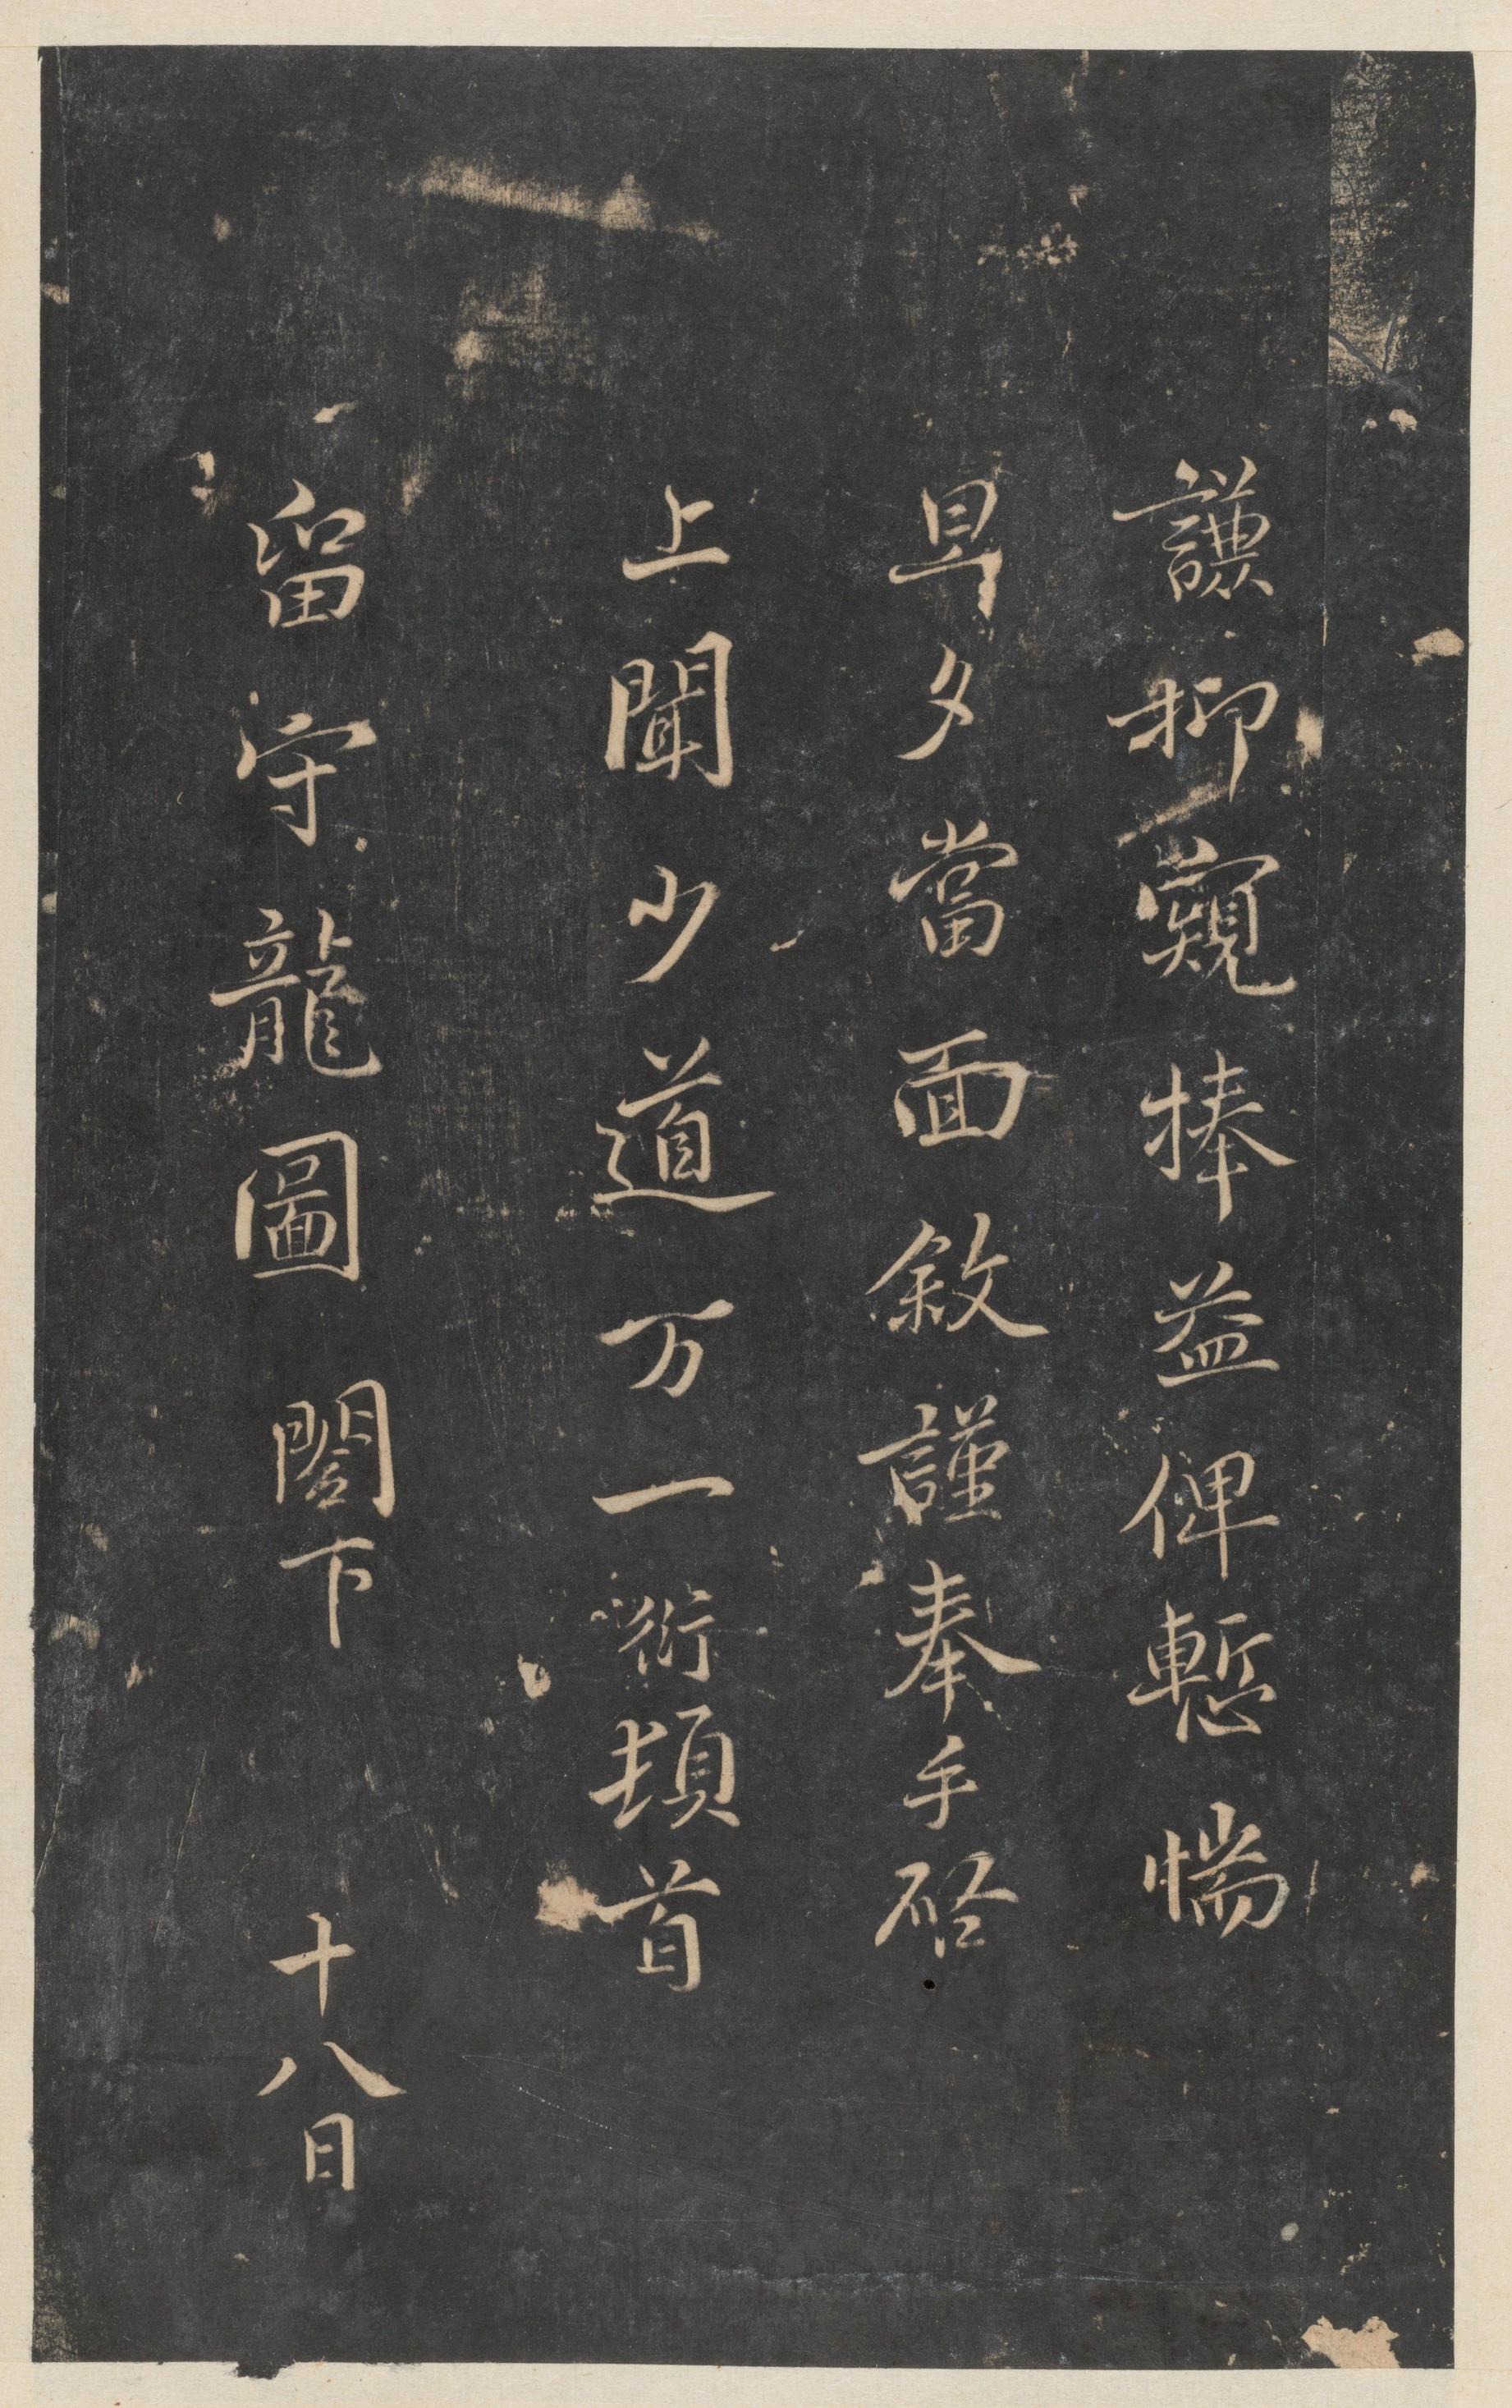 謙抑窺捧益俾慙惴
旦夕當面敘謹奉手啓
上聞少道万一衍頓首
留守龍圖閣下 十八日